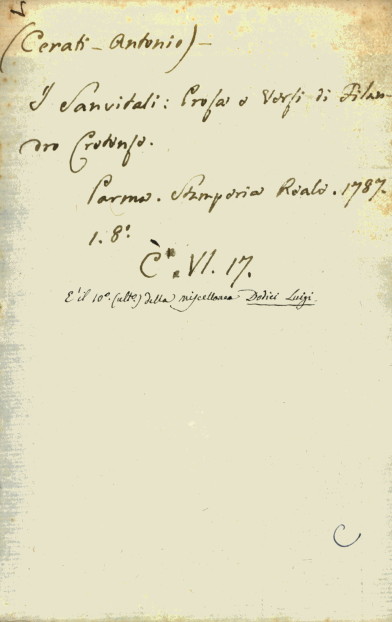 (Cerati - Antonio) -
I Sanvitali: Prosa e Versi di Filan-
dro Cretense.
Parma. Stamperia Reale. 1787.
1. 8º.
C*. VI. 17.
E' il 10º. (ult.) della miscellanea Dodici Luigi.
C